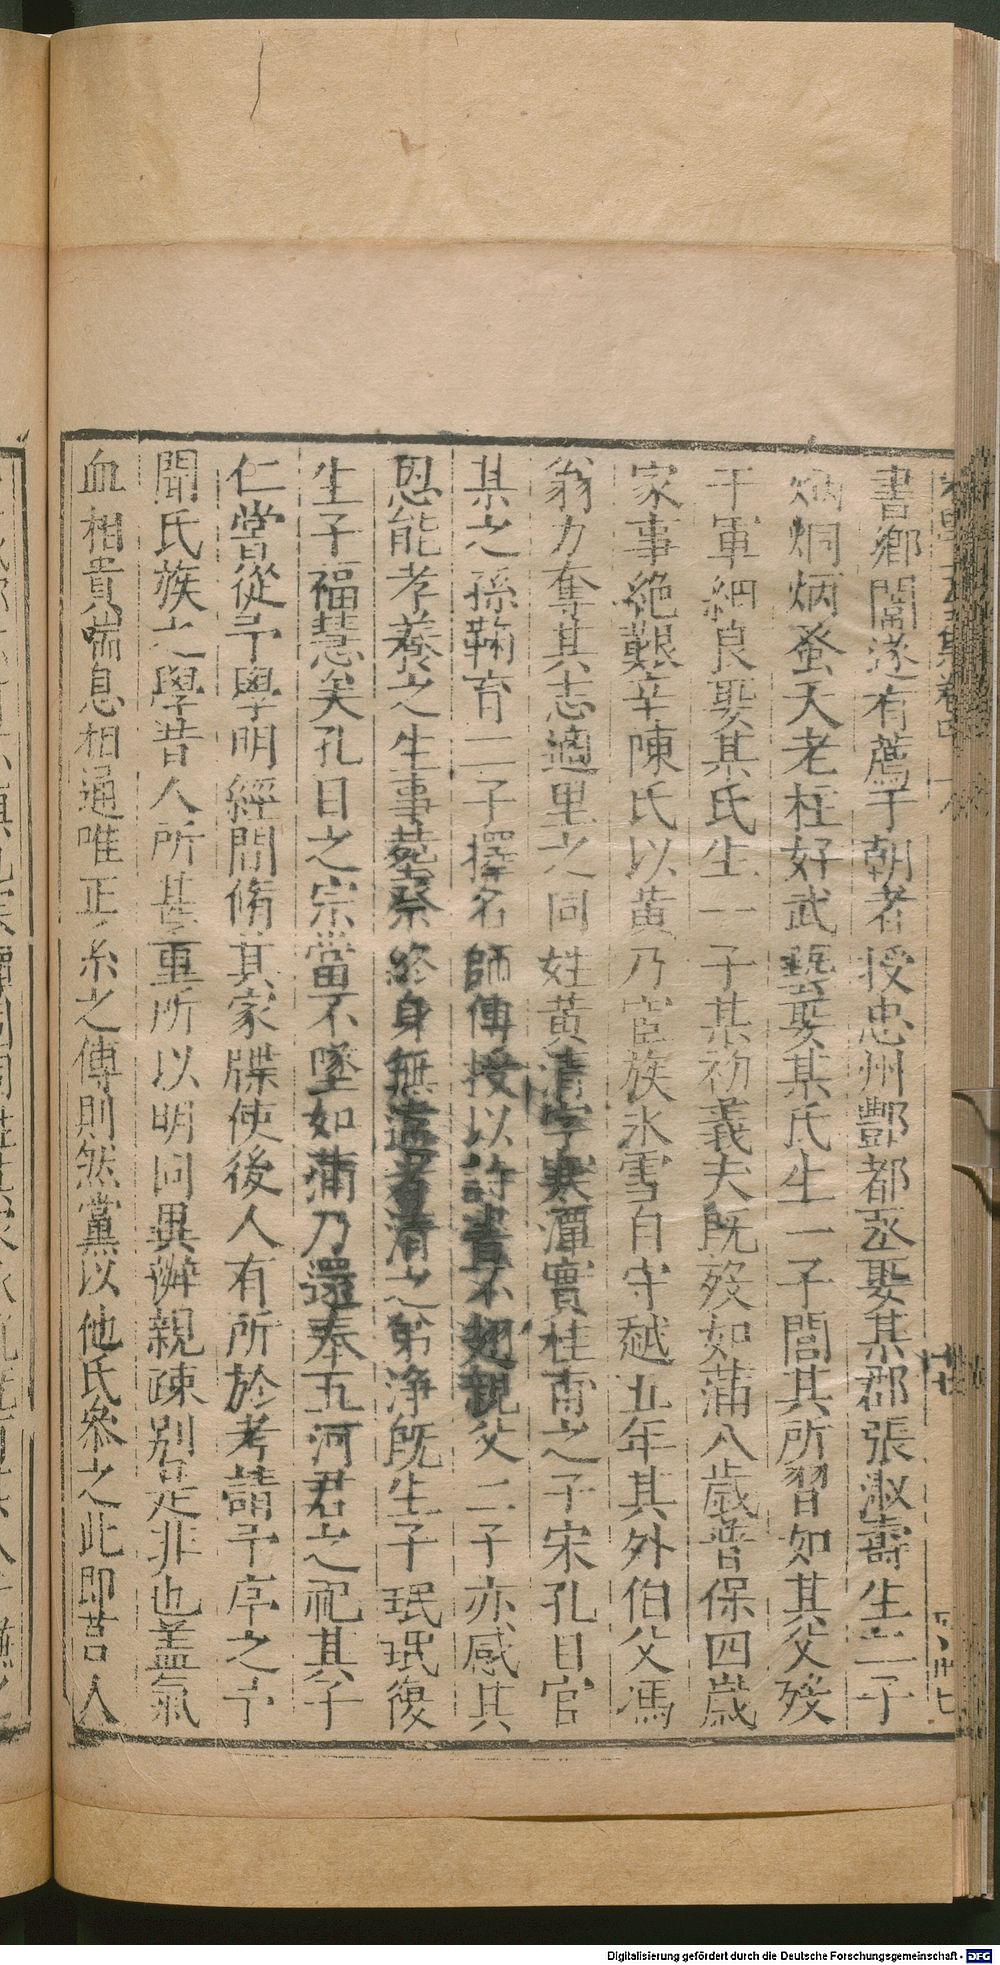 書鄉閭遂有薦于朝者授忠州酆都丞娶某郡張淑壽生二子
炯炳蚤夭老枉好武藝娶某氏生一子誾其所習如其父歿
于軍綱良娶某氏生一子某初義夫既歿如蒲八歲普保四歲
家事絶艱辛陳氏以黃乃宦族氷雪自守越五年其外伯父馮
翁力奪其志適里之同姓黃清字寒潭實桂甫之子宋孔目官
某之孫鞠育二子擇名師傅授以詩書不翅親父二子亦感其
恩能孝養之生事葬祭終身無違者清之弟淨既生子珉珉復
生子福慧矣孔目之宗當不墜如蒲乃還奉五河君之祀其子
仁嘗從予學明經間脩其家牒使後人有所於考請予序之予
聞氏族之學昔人所甚重所以明同異辨親疎别是非也盖氣
血相貫喘息相通唯正糸之傳則然黨以他氏參之此即莒人
Digitalisierung gefördert durch die Deutsche Forschungsgemeinschaft - DFG